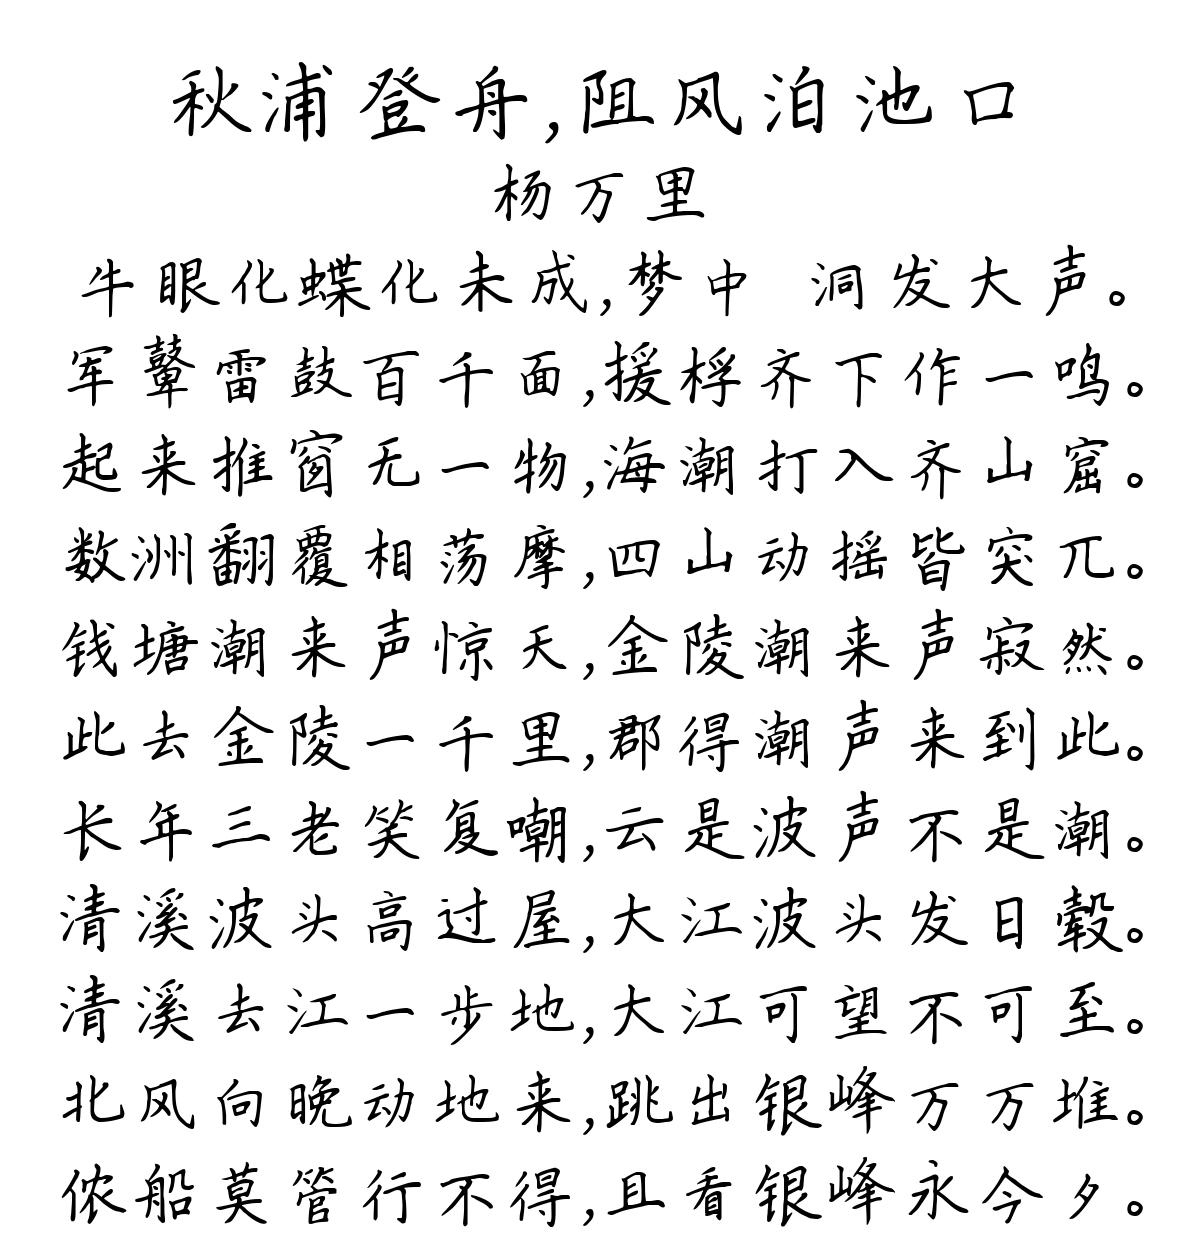 秋浦登舟,阻风泊池口
杨万里
牛眼化蝶化未成,梦中 洞发大声。
军鼙雷鼓百千面,援桴齐下作一鸣。
起来推窗无一物,海潮打入齐山窟。
数洲翻覆相荡摩,四山动摇皆突兀。
钱塘潮来声惊天,金陵潮来声寂然。
此去金陵一千里,郡得潮声来到此。
长年三老笑复嘲,云是波声不是潮。
清溪波头高过屋,大江波头发日毂。
清溪去江一步地,大江可望不可至。
北风向晚动地来,跳出银峰万万堆。
侬船莫管行不得,且看银峰永今夕。